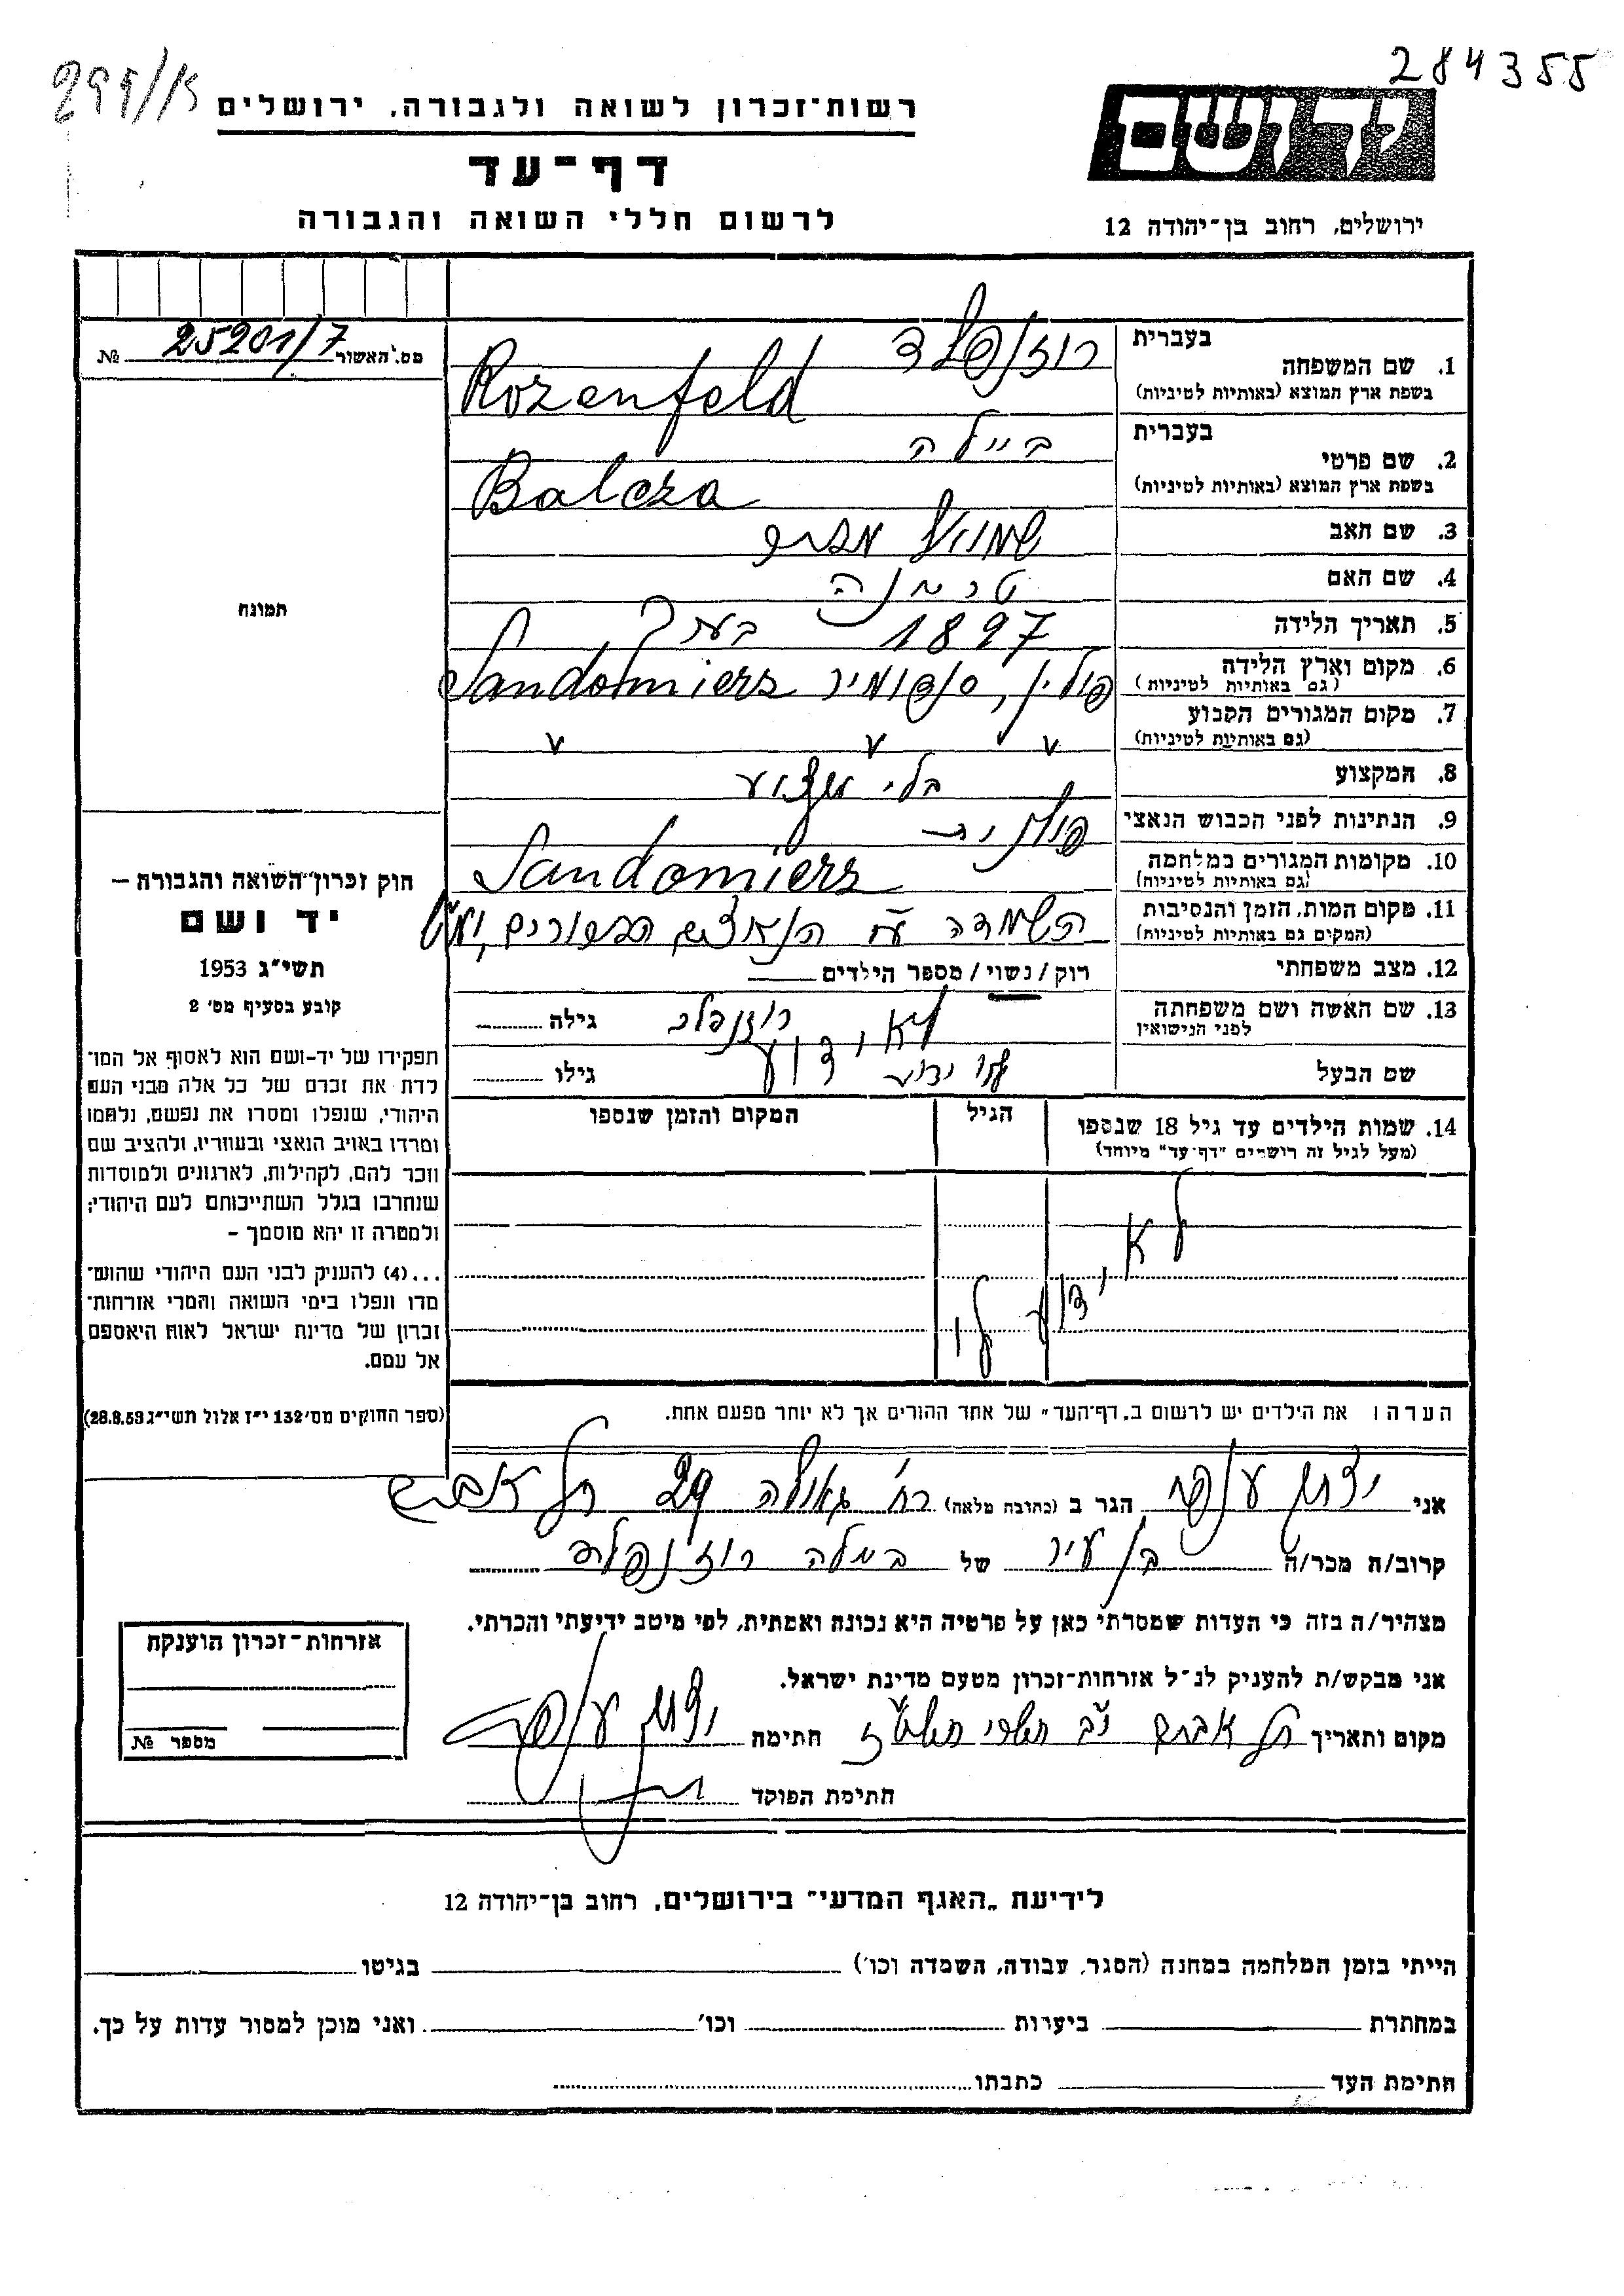 284355
299/א
יד ושם
רשות־זכרון לשואה ולגבורה, ירושלים
דף־עד
לרשום חללי השואה והגבורה
ירושלים, רחוב בן־יהודה 12
מס. האשור 25201/7 №
תמונה
חוק זכרון־השואה והגבורה –
יד ושם
תשי״ג 1953
קובע בסעיף מס׳ 2
תפקידו של יד-ושם הוא לאסוף אל המו־
לדת את זכרם של כל אלה מבני העם
היהודי, שנפלו ומסרו את נפשם, נלחמו
ומרדו באויב הנאצי ובעוזריו, ולהציב שם
וזכר להם, לקהילות, לארגונים ולמוסדות
שנחרבו בגלל השתייכותם לעם היהודי;
ולמטרה זו יהא מוסמך –
...(4) להעניק לבני העם היהודי שהוש־
מדו ונפלו בימי השואה והמרי אזרחות־
זכרון של מדינת ישראל לאות היאספם
אל עמם.
(ספר החוקים מס׳ 132 י״ז אלול תשי״ג 28.8.53)
בעברית רוזנפלד
1. שם המשפחה
בשפת ארץ המוצא (באותיות לטיניות) Rozenfeld
בעברית ביילה
2. שם פרטי
בשפת ארץ המוצא (באותיות לטיניות) Balcza
3. שם האב שמואל
4. שם האם
5. תאריך הלידה 1897 בערך
6. מקום וארץ הלידה פולין, סנדומיר Sandomiers
(גם באותיות לטיניות)
7. מקום המגורים הקבוע
(גם באותיות לטיניות) v v v
8. המקצוע בלי מקצוע
9. הנתינות לפני הכבוש הנאצי פולנית
10. מקומות המגורים במלחמה Sandomiers
(גם באותיות לטיניות)
11. מקום המות, הזמן והנסיבות השמדה ע״י הנאצים
(המקום גם באותיות לטיניות)
12. מצב משפחתי רוק / נשוי / מספר הילדים
13. שם האשה ושם משפחתה רוזנפלד גילה
לפני הנישואין לא ידוע
שם הבעל לא ידוע גילו
14. שמות הילדים עד גיל 18 שנספו הגיל המקום והזמן שנספו
(מעל לגיל זה רושמים ״דף־עד״ מיוחד)
לא ידוע לי
הערה: את הילדים יש לרשום ב„דף־העד״ של אחד ההורים אך לא יותר מפעם אחת.
אני יצחק הגר ב (כתובת מלאה) רח׳ גאולה 29 תל אביב
קרוב/ה מכר/ה בן עיר של ביילה רוזנפלד
מצהיר/ה בזה כי העדות שמסרתי כאן על פרטיה היא נכונה ואמתית, לפי מיטב ידיעתי והכרתי.
אני מבקש/ת להעניק לנ״ל אזרחות־זכרון מטעם מדינת ישראל.
מקום ותאריך תל אביב י״ב תשרי תשט״ז חתימה יצחק
חתימת הפוקד
אזרחות־זכרון הוענקה
מספר №
לידיעת „האגף המדעי״ בירושלים, רחוב בן־יהודה 12
הייתי בזמן המלחמה במחנה (הסגר, עבודה, השמדה וכו׳) בגיטו
במחתרת ביערות וכו׳ ואני מוכן למסור עדות על כך.
חתימת העד כתבתו